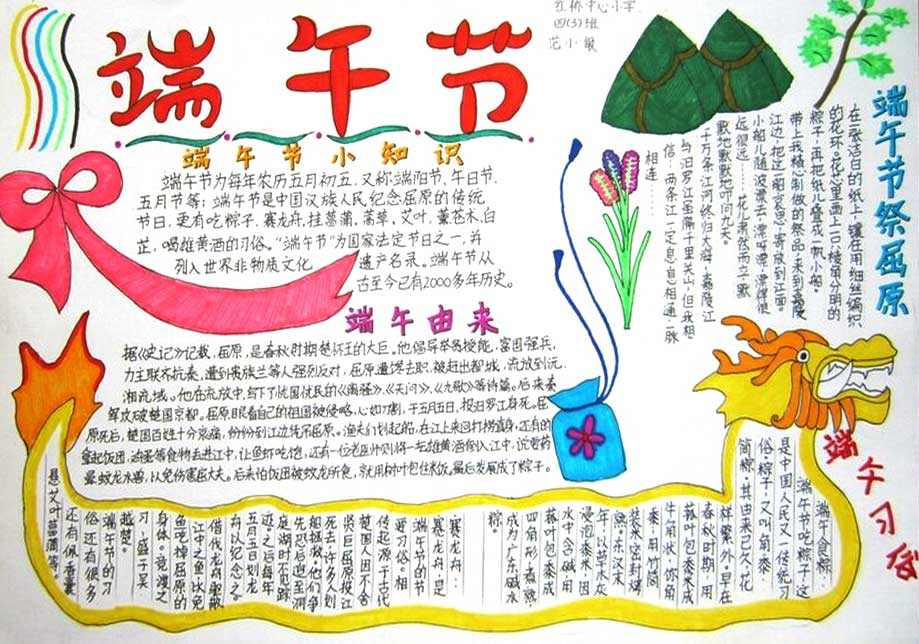 红桥中心小学
四(3)班
范小敏
端午节
端午节小知识
端午节为每年农历五月初五,又称端阳节、午日节、
五月节等;端午节是中国汉族人民纪念屈原的传统
节日,更有吃粽子,赛龙舟,挂菖蒲,蒿草,艾叶,薰苍术,白
芷,喝雄黄酒的习俗。“端午节”为国家法定节日之一,并
列入世界非物质文化遗产名录。端午节从
古至今已有2000多年历史。
端午由来
据《史记》记载,屈原,是春秋时期楚怀王的大臣。他倡导举贤授能,富国强兵,
力主联齐抗秦,遭到贵族兰等人强烈反对,屈原遭馋去职,被赶出都城,流放到沅、
湘流域。他在流放中,写下了忧国忧民的《离骚》、《天问》、《九歌》等诗篇。后来秦
军攻破楚国京都。屈原眼看自己的祖国被侵略,心如刀割,于五月五日,投汨罗江身死。屈
原死后,楚国百姓十分哀痛,纷纷到江边凭吊屈原。渔夫们划起船,在江上来回打捞真身,还有的
拿起饭团、鸡蛋等食物丢进江中,让鱼虾吃饱,还有一位老医师则将一坛雄黄酒倒入江中,说要药
晕蛟龙水兽,以免伤害屈大夫。后来怕饭团被蛟龙所食,就用树叶包住米饭,最后发展成了粽子。
端午节祭屈原
在一张洁白的纸上,镶在用细丝编织
的花环,花心里画上一只棱角分明的
粽子,再把纸儿叠成一帆小船。
带上我精心制做的祭品,来到嘉陵
江边,把这船哀思,寄放到江面。
小船儿随波漂去,漂呀漂,漂得很
远很远……花儿肃然而立,默
默地默默地叩问九天。
千万条江河终归大海,嘉陵江
与汨罗江虽隔千里关山,但我相
信,两条江一定息息相通一脉
相连……
端午习俗
端午食粽:
端午节吃粽子,这
是中国人民又一传统习
俗。粽子,又叫“角黍”、“
筒粽”。其由来已久,花
样繁外。早在
春秋时期,用
菰叶包黍米成
牛角状,称“角
黍”;用竹筒
装米密封烤
熟。东汉末
年,以草木灰
浸泡黍米,因
水中含碱,用
菰叶包黍米成
四角形,煮熟,
成为广东碱水
粽。
赛龙舟:
赛龙舟,是
端午节的节
要习俗。相
传起源于古代
楚国人因不舍
贤臣屈原投江
死去,许多人划
船追至洞
庭湖时不见踪
迹。之后每年
五月五日划龙
舟以纪念之。
借划龙舟驱散
江中之鱼,以免
鱼吃掉屈原的
身体。竞渡之
习,盛于吴
越楚。
端午节的习
俗还有很多
还有佩香囊
悬艾叶菖蒲等。